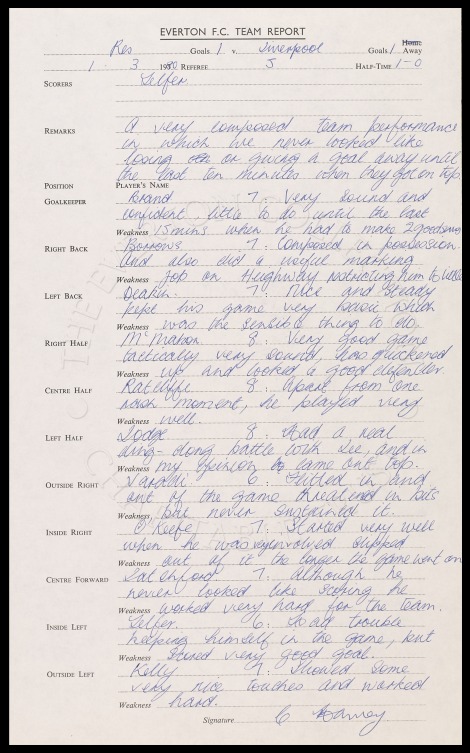 EVERTON F.C. TEAM REPORT
Res Goals 1 v. Liverpool Goals 1 Home Away
1 . 3 1980 REFEREE HALF-TIME 1-0
SCORERS Telfer.
REMARKS A very composed team performance
in which we never looked like
losing or giving a goal away until
the last ten minutes when they got on top.
POSITION PLAYER'S NAME
GOALKEEPER Brand 7: Very sound and
confident, little to do until the last
Weakness 15 mins when he had to make 2 good saves
RIGHT BACK Borrows 7: Composed in possession
and also did a useful marking
Weakness job on Heighway restricting him to little
LEFT BACK Deakin. 7: Nice and steady
kept his game very basic which
Weakness was the sensible thing to do.
RIGHT HALF McMahon. 8: Very good game
tactically very sound, has quickened
Weakness up and looked a good defender
CENTRE HALF Ratcliffe 8: Apart from one
rash moment, he played very
Weakness well.
LEFT HALF Dodge 8: Had a real
ding-dong battle with Lee, and in
Weakness my opinion came out top.
OUTSIDE RIGHT Varadi. 6: Flitted in and
out of the game threatened in bits
Weakness but never sustained it.
INSIDE RIGHT O'Keefe 7: Started very well
when he was very involved slipped
Weakness out of it the longer the game went on
CENTRE FORWARD Latchford 7: Although he
never looked like scoring he
Weakness worked very hard for the team.
INSIDE LEFT Telfer. 6: Had trouble
helping himself in the game, but
Weakness scored very good goal.
OUTSIDE LEFT Kelly 7: Showed some
very nice touches and worked
Weakness hard.
Signature C Harvey